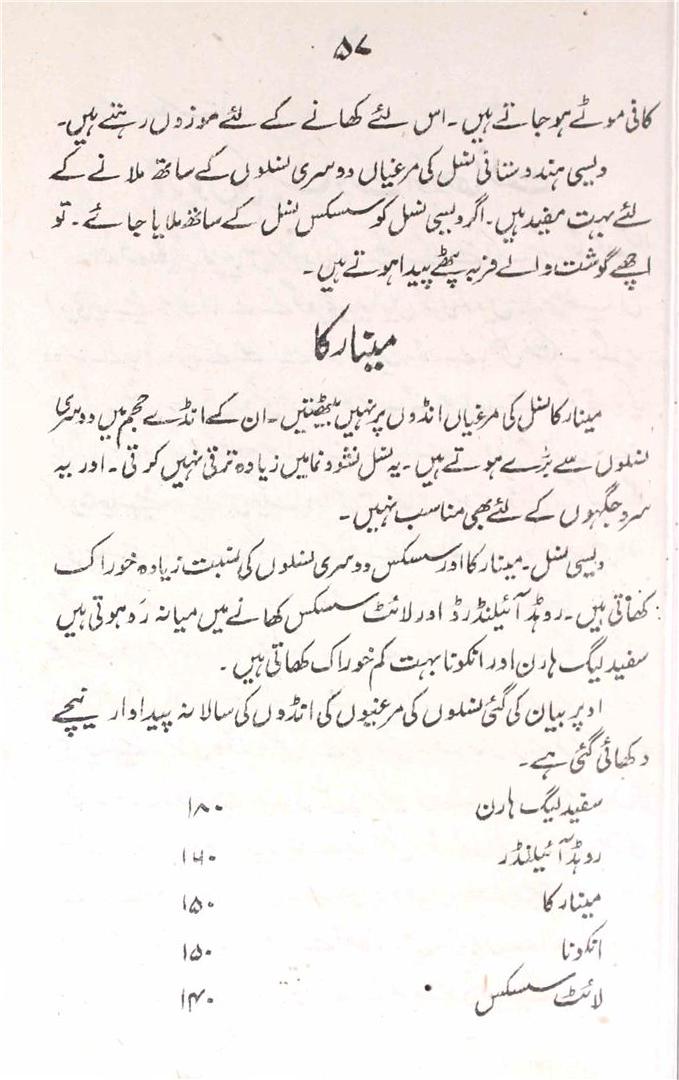 ۵۷
کافی موٹے ہو جاتے ہیں۔ اس لئے کھانے کے لئے موزوں رہتے ہیں۔
دیسی ہندوستانی نسل کی مرغیاں دوسری نسلوں کے ساتھ ملانے کے
لئے بہت مفید ہیں۔ اگر دیسی نسل کو سسکس نسل کے ساتھ ملایا جائے۔ تو
اچھے گوشت والے فربہ پٹھے پیدا ہوتے ہیں۔
مینارکا
مینارکا نسل کی مرغیاں انڈوں پر نہیں بیٹھتیں۔ ان کے انڈے حجم میں دوسری
نسلوں سے بڑے ہوتے ہیں۔ یہ نسل نشوونما میں زیادہ ترقی نہیں کرتی۔ اور یہ
سرد جگہوں کے لئے بھی مناسب نہیں۔
دیسی نسل۔ مینارکا اور سسکس دوسری نسلوں کی نسبت زیادہ خوراک
کھاتی ہیں۔ روڈ آئیلنڈ رڈ اور لائٹ سسکس کھانے میں میانہ رہ ہوتی ہیں
سفید لیگ ہارن اور انکونا بہت کم خوراک کھاتی ہیں۔
اوپر بیان کی گئی نسلوں کی مرغیوں کی انڈوں کی سالانہ پیداوار نیچے
دکھائی گئی ہے۔
سفید لیگ ہارن ۱۸۰
روڈ آئیلنڈر ۱۶۰
مینارکا ۱۵۰
انکونا ۱۵۰
لائٹ سسکس ۱۴۰